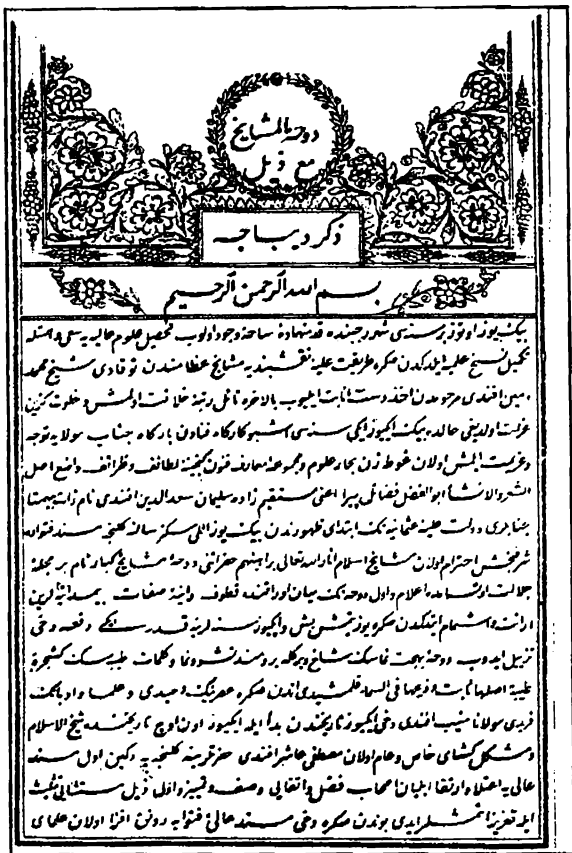 دوحة المشايخ
مع ذيل
ذكر ديباجه
بسم الله الرحمن الرحيم
بيك يوز اوتوز بر سنه‌سى شهر رجبنده قدم نهادهٔ ساحهٔ وجود اولوب تحصيل علوم عاليه يه سعى
تكميل نسخ عليه ايلدكدن صكره طريقت عليهٔ نقشبنديه مشايخ عظامندن توقادى شيخ محمد
امين افندى مرحومدن اخذ دست انابت ايليوب بالاخره نائل رتبهٔ خلافت اولمش و خلوت كزين
عزلت اولديغى حالده بيك ايكيوز ايكى سنه‌سى اشبو كاركاه فنادن باركاه جناب مولايه توجه
و عزيمت ايلمش اولان غوطه زن بحار علوم و مجموعهٔ معارف فنون كنجينهٔ لطائف و ظرائف واضع اصل
الشعر والانشا ابو الفضل فضائل پيرا اعنى مستقيم زاده سليمان سعد الدين افندى نام ذات بيهمتا
دولت عليهٔ عثمانيه نك ابتداى ظهورندن بيك يوز اللى سكز سالنه كلنجه مسند فتوايه
شرفبخش احترام اولان مشايخ اسلام انار الله تعالى براهينهم حضراتنى دوحهٔ مشايخ كبار نام بر مجلهٔ
اعلام و اول دوحه نك ميان اوراقنده قطوف دانيهٔ صفات
ارائت و اشمام ايتدكدن صكره يوز يتمش بش و ايكيوز سنه لرينه قدر ايكى دفعه دخى
تذييل ايدوب دوحهٔ بهجت شاخ و بركله برومند نشو و نما و كلمات طيبه سنك كشجرة
طيبة اصلها ثابت و فرعها فى السماء ايتدن صكره عصرينك وحيدى و علما و ادبانك
فريدى مولانا منيب افندى دخى ايكيوز تاريخندن بدأ ايله ايكيوز اون اوچ تاريخنده شيخ الاسلام
و مشكل كشاى خاص و عام اولان مصطفى عاشر افندى حضرتلرينه كلنجه يه دكين اول مسند
عالى يه اعتلا و ارتقا ايليان اصحاب فضل و اتقايى وصف و تمييز و اول ذيل مستثنايى تثليث
ايله تعزيز ايتمشلر ايدى بوندن صكره دخى مسند عالئ فتوايه رونق افزا اولان علماى